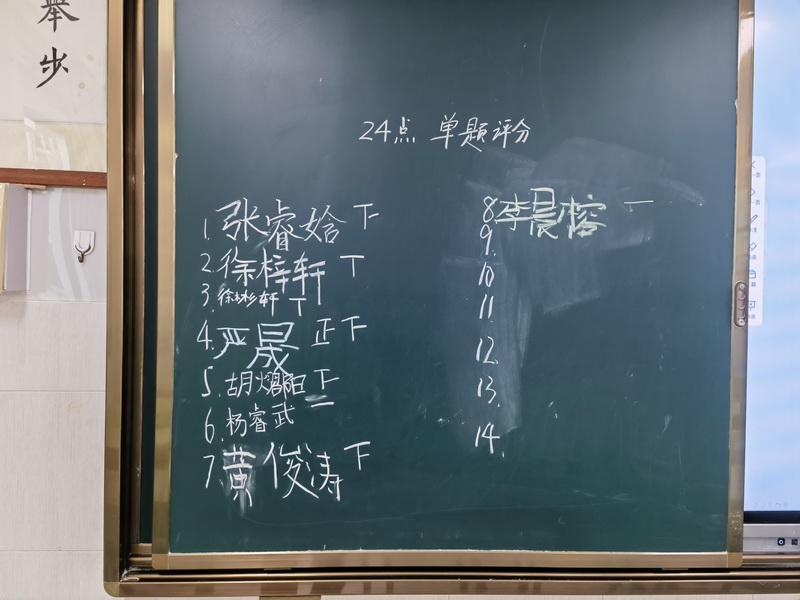 举步
24点 单题评分
1. 张睿姶 下
2. 徐梓轩 丅
3. 徐彬轩 丅
4. 严晟 正下
5. 胡熠阳 下
6. 杨睿武 二
7. 黄俊涛 下
8. 李晨榕 一
9.
10
11
12.
13.
14.